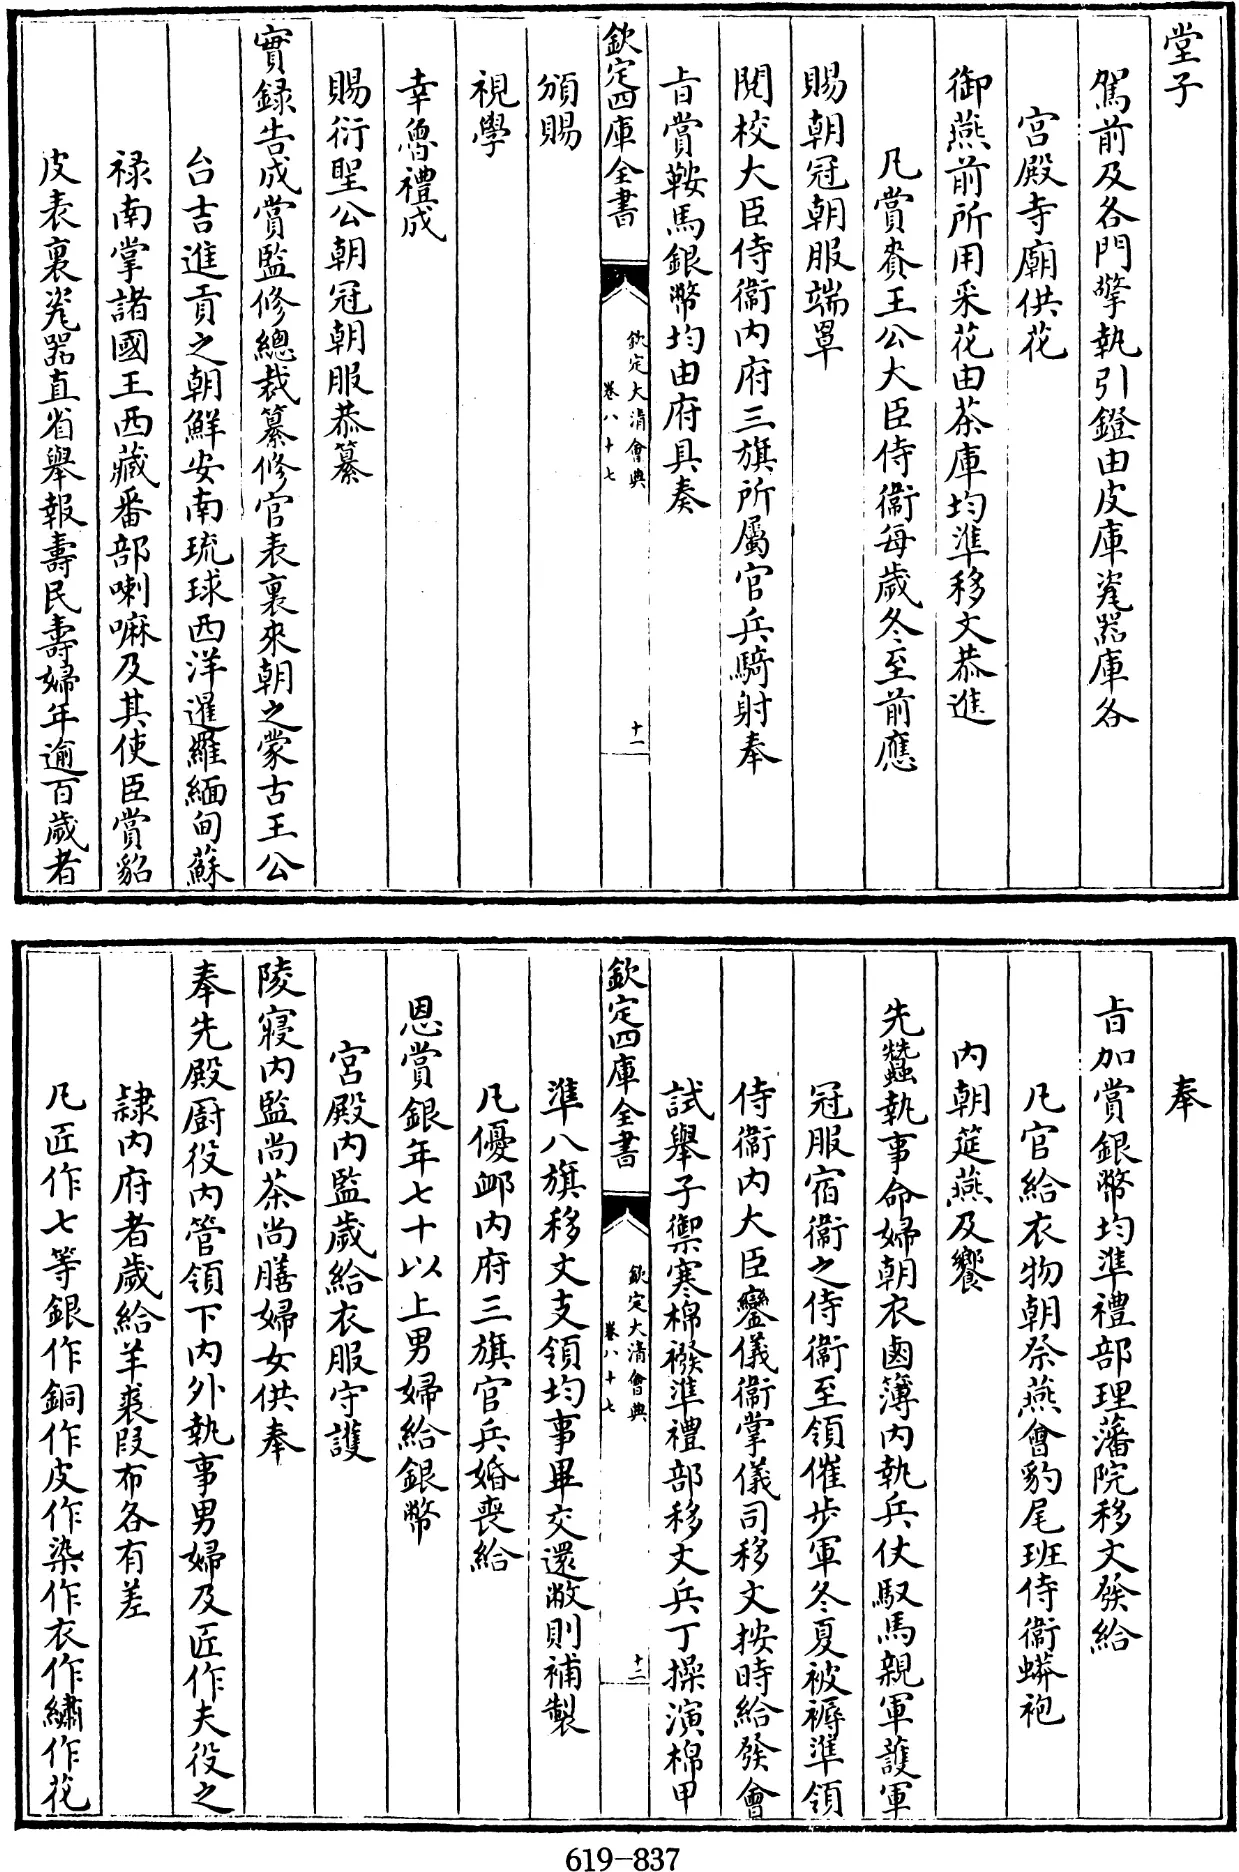 堂子
駕前及各門擎執引鐙由皮庫瓷器庫各
宫殿寺廟供花
御燕前所用采花由茶庫均準移文恭進
凡賞賚王公大臣侍衞每歲冬至前應
賜朝冠朝服端罩
閱校大臣侍衞内府三旗所屬官兵騎射奉
㫖賞鞍馬銀幣均由府具奏
欽定四庫全書
欽定大清會典
卷八十七
十一
頒賜
視學
幸魯禮成
賜衍聖公朝冠朝服恭纂
實録告成賞監修總裁纂修官表裏來朝之蒙古王公
台吉進貢之朝鮮安南琉球西洋暹羅緬甸蘇
禄南掌諸國王西藏番部喇嘛及其使臣賞貂
皮表裏瓷器直省舉報壽民壽婦年逾百歲者
奉
㫖加賞銀幣均準禮部理藩院移文發給
凡官給衣物朝祭燕會豹尾班侍衞蟒袍
内朝筵燕及饗
先蠶執事命婦朝衣鹵簿内執兵仗馭馬親軍護軍
冠服宿衞之侍衞至領催步軍冬夏被褥準領
侍衞内大臣鑾儀衞掌儀司移文按時給發會
試舉子禦寒棉襏準禮部移文兵丁操演棉甲
欽定四庫全書
欽定大清會典
卷八十七
十二
準八旗移文支領均事畢交還敝則補製
凡優卹内府三旗官兵婚喪給
恩賞銀年七十以上男婦給銀幣
宫殿内監歲給衣服守護
陵寢内監尚茶尚膳婦女供奉
奉先殿厨役内管領下内外執事男婦及匠作夫役之
隷内府者歲給羊裘叚布各有差
凡匠作七等銀作銅作皮作染作衣作繡作花
619-837